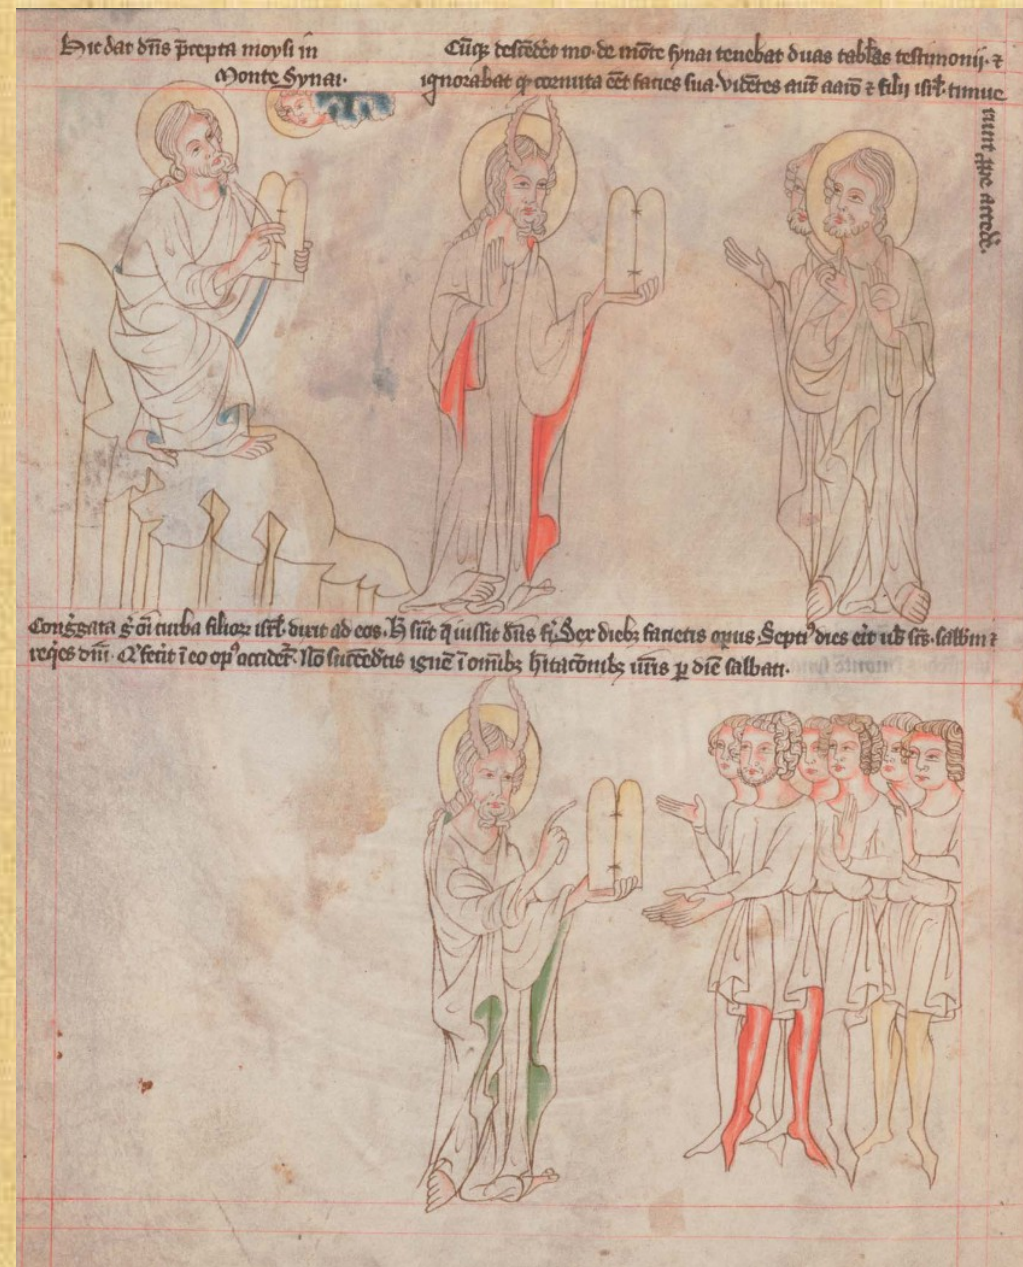 Hic dat dn̄s p̄cepta moysi in
Monte Synai.
Cūq; descēdēt mo. de mōte synai tenebat duas tablās testimonij. ⁊
ignorabat q̄ cornuta cēt facies sua. Vidētes aut̄ aarō ⁊ filij isrl̄. timue
runt ꝓpe accedē.
Cong̃gata g̊ oī turba filioꝝ isrl̄. dixit ad eos. H̄ sūt q̄ iussit dn̄s fi̇. Sex dieb; facietis opus Septiꝰ dies erit uob̄ sc̄s. sabbm̄ ⁊
req̇es dn̄i. Q̇ fecit ī eo opꝰ occidet̃. Nō succēdetis ignē ī om̄ib; h̄itac̄onib; ur̄is ꝑ diē sabbati.